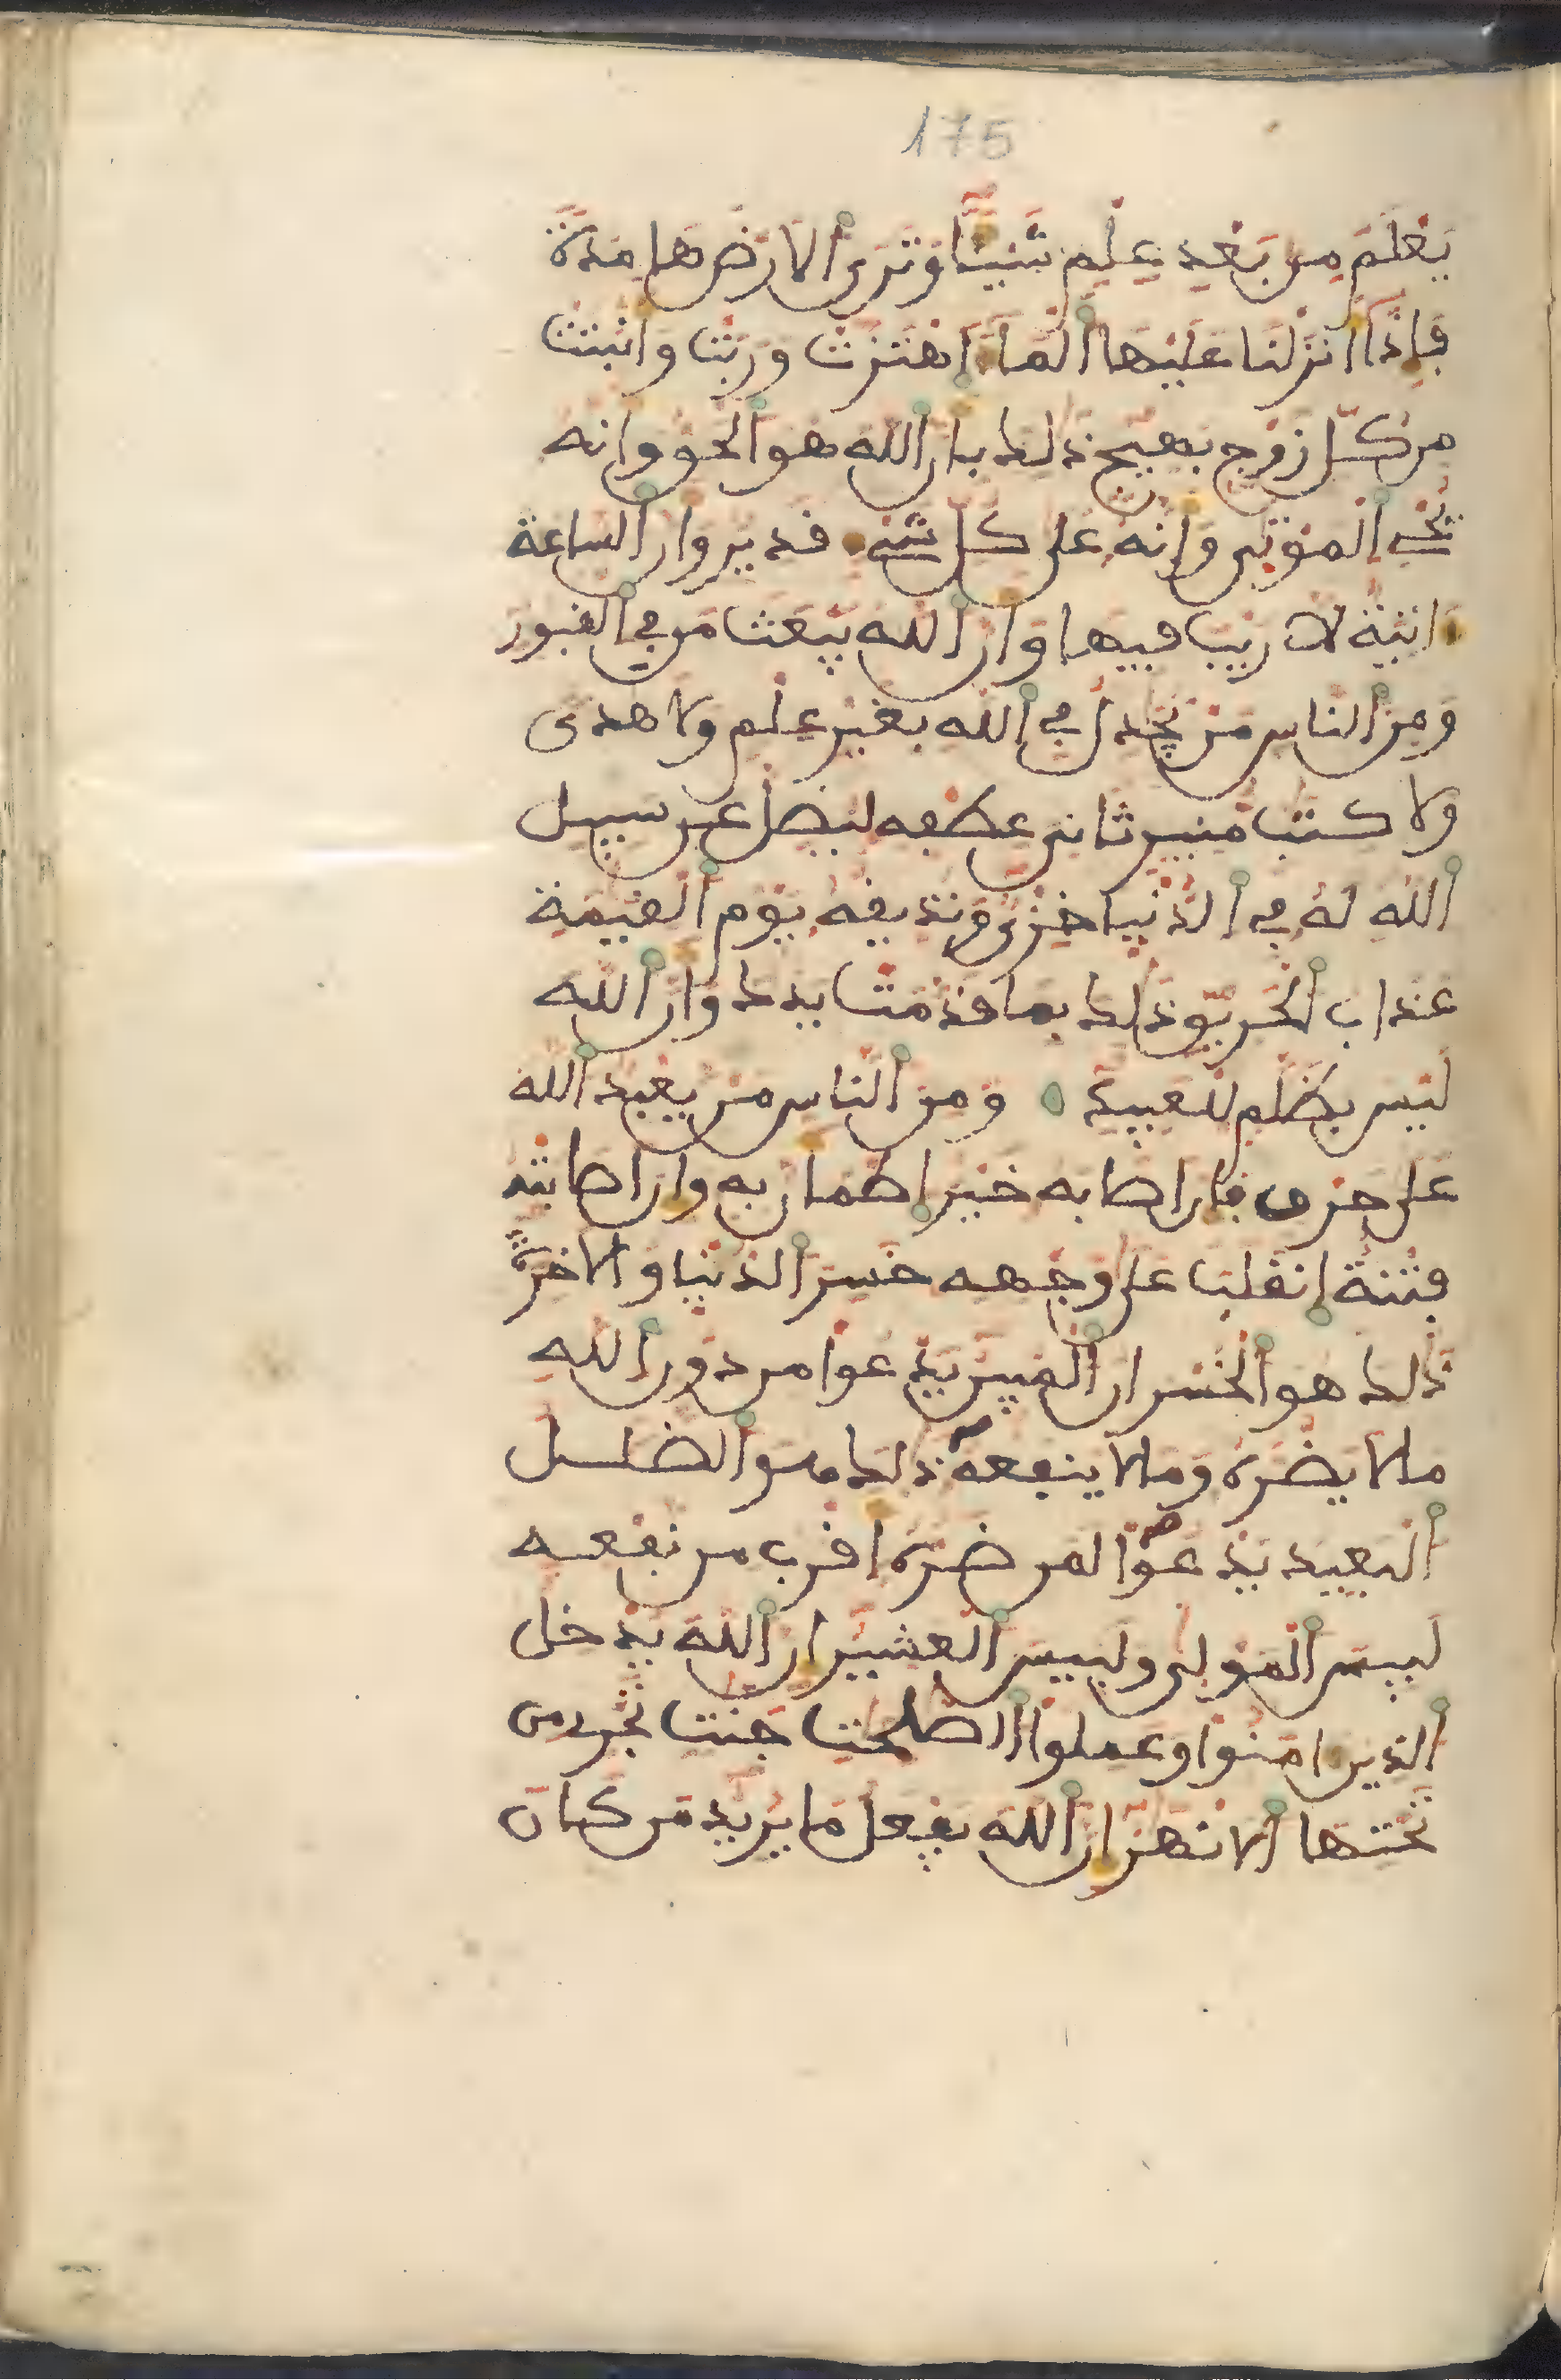 175
يَعْلَمَ مِن بَعْدِ عِلْمٍ شَيْئًا وَتَرَى ٱلارْضَ هَامِدَةً
فَإِذَآ أَنزَلْنَا عَلَيْهَا ٱلْمَآءَ ٱهْتَزَّتْ وَرَبَتْ وَأَنۢبَتَتْ
مِن كُلِّ زَوْجٍ بَهِيجٍ ذَٰلِكَ بِأَنَّ ٱللَّهَ هُوَ ٱلْحَقُّ وَأَنَّهُ
يُحْىِ ٱلْمَوْتَىٰ وَأَنَّهُ عَلَىٰ كُلِّ شَىْءٍ قَدِيرٌ وَأَنَّ ٱلسَّاعَةَ
ءَاتِيَةٌ لَّا رَيْبَ فِيهَا وَأَنَّ ٱللَّهَ يَبْعَثُ مَن فِى ٱلْقُبُورِ
وَمِنَ ٱلنَّاسِ مَنْ يُّجَٰدِلُ فِى ٱللَّهِ بِغَيْرِ عِلْمٍ وَلَا هُدًى
وَلَا كِتَٰبٍ مُّنِيرٍ ثَانِىَ عِطْفِهِ لِيُضِلَّ عَن سَبِيلِ
ٱللَّهِ لَهُ فِى ٱلدُّنْيَا خِزْىٌ وَنُذِيقُهُ يَوْمَ ٱلْقِيَٰمَةِ
عَذَابَ ٱلْحَرِيقِ ذَٰلِكَ بِمَا قَدَّمَتْ يَدَٰكَ وَأَنَّ ٱللَّهَ
لَيْسَ بِظَلَّٰمٍ لِّلْعَبِيدِ وَمِنَ ٱلنَّاسِ مَنْ يَّعْبُدُ ٱللَّهَ
عَلَىٰ حَرْفٍ فَإِنْ أَصَابَهُ خَيْرٌ ٱطْمَأَنَّ بِهِ وَإِنْ أَصَابَتْهُ
فِتْنَةٌ ٱنقَلَبَ عَلَىٰ وَجْهِهِ خَسِرَ ٱلدُّنْيَا وَٱلاخِرَةَ
ذَٰلِكَ هُوَ ٱلْخُسْرَانُ ٱلْمُبِينُ يَدْعُوا مِن دُونِ ٱللَّهِ
مَا لَا يَضُرُّهُ وَمَا لَا يَنفَعُهُ ذَٰلِكَ هُوَ ٱلضَّلَٰلُ
ٱلْبَعِيدُ يَدْعُوا لَمَن ضَرُّهُ أَقْرَبُ مِن نَّفْعِهِ
لَبِيسَ ٱلْمَوْلَىٰ وَلَبِيسَ ٱلْعَشِيرُ إِنَّ ٱللَّهَ يُدْخِلُ
ٱلَّذِينَ ءَامَنُوا وَعَمِلُوا ٱلصَّٰلِحَٰتِ جَنَّٰتٍ تَجْرِى مِن
تَحْتِهَا ٱلانْهَٰرُ إِنَّ ٱللَّهَ يَفْعَلُ مَا يُرِيدُ مَن كَانَ